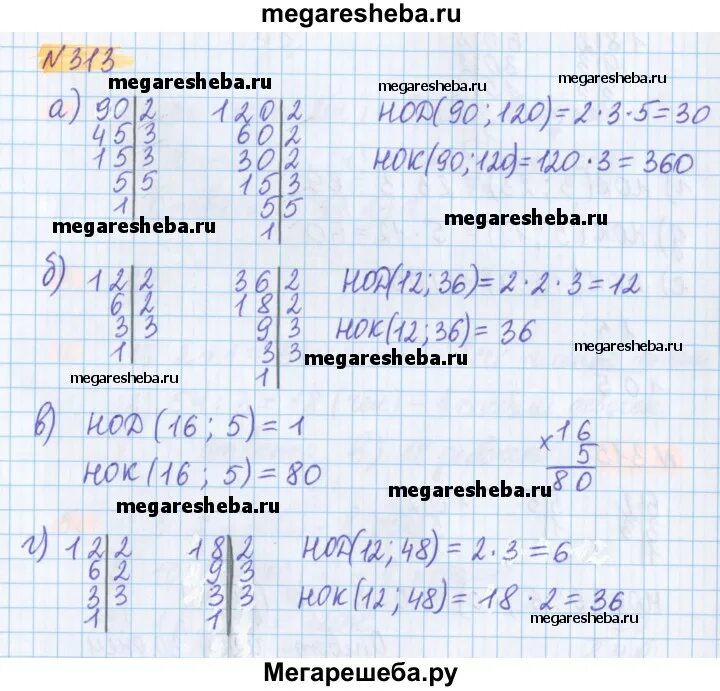 megaresheba.ru
N 313
megaresheba.ru
megaresheba.ru
megaresheba.ru
а) 90|2 120|2 НОД(90; 120)=2·3·5=30
45|3 60|2
15|3 30|2 НОК(90; 120)=120·3=360
5|5 15|3
1| 5|5
1|
megaresheba.ru
megaresheba.ru
б) 12|2 36|2 НОД(12; 36)=2·2·3=12
6|2 18|2
3|3 9|3 НОК(12; 36)=36
1| 3|3
1|
megaresheba.ru
megaresheba.ru
megaresheba.ru
в) НОД (16; 5)=1
НОК (16; 5)=80
×16
5
80
megaresheba.ru
megaresheba.ru
г) 12|2 18|2 НОД(12; 48)=2·3=6
6|2 9|3
3|3 3|3 НОК(12; 48)=18·2=36
1| 1|
megaresheba.ru
Мегарешеба.ру